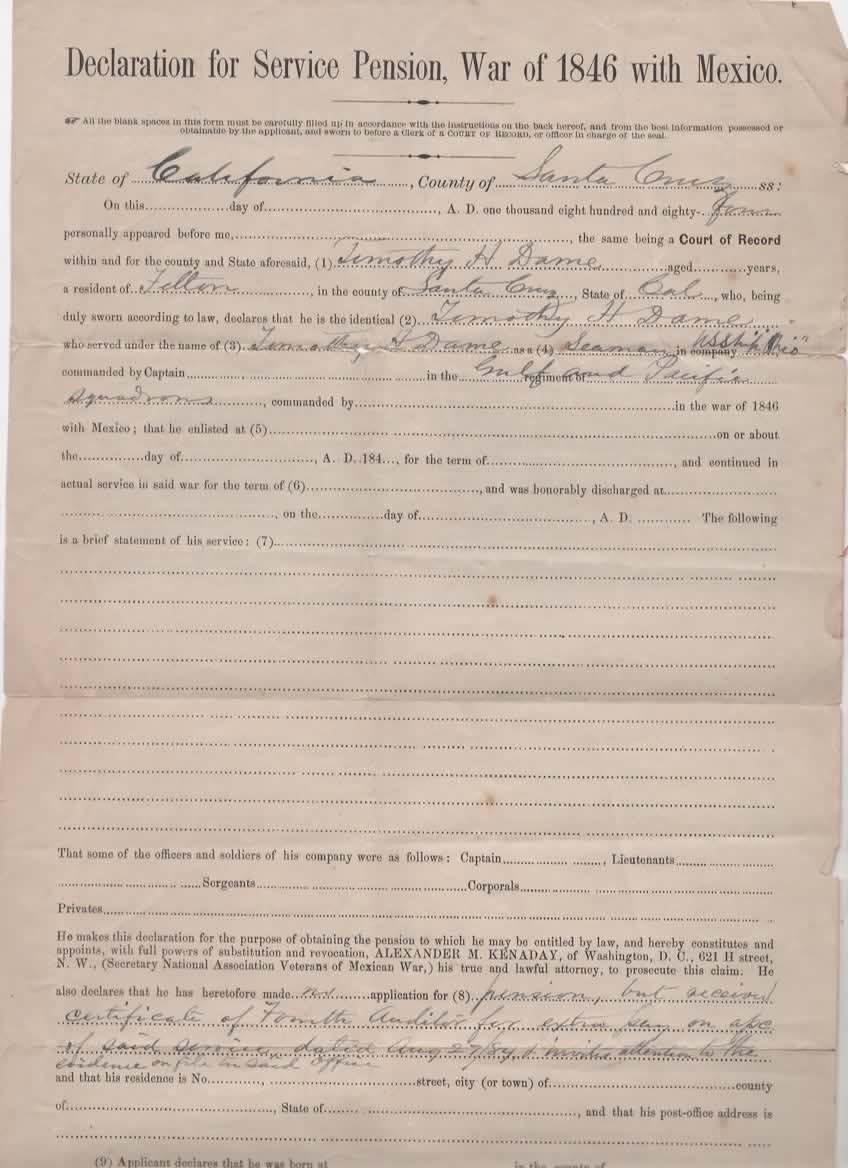 Declaration for Service Pension, War of 1846 with Mexico.
☞ All the blank spaces in this form must be carefully filled up in accordance with the instructions on the back hereof, and from the best information possessed or
obtainable by the applicant, and sworn to before a Clerk of a COURT OF RECORD, or officer in charge of the seal.
State of California, County of Santa Cruz ss:
On this ........ day of ........, A. D. one thousand eight hundred and eighty-four
personally appeared before me, ........, the same being a Court of Record
within and for the county and State aforesaid, (1) Timothy H Dame aged ........ years,
a resident of Felton, in the county of Santa Cruz, State of Cal, who, being
duly sworn according to law, declares that he is the identical (2) Timothy H Dame
who served under the name of (3) Timothy H Dame as a (4) Seaman in company US Ship "Ohio"
commanded by Captain ........ in the regiment of Gulf and Pacific
squadrons, commanded by ........ in the war of 1846
with Mexico; that he enlisted at (5) ........ on or about
the ........ day of ........, A. D. 184..., for the term of ........, and continued in
actual service in said war for the term of (6) ........, and was honorably discharged at ........
........, on the ........ day of ........, A. D. ........ The following
is a brief statement of his service: (7) ........
That some of the officers and soldiers of his company were as follows: Captain ........, Lieutenants ........
........ Sergeants ........ Corporals ........
Privates ........
He makes this declaration for the purpose of obtaining the pension to which he may be entitled by law, and hereby constitutes and
appoints, with full powers of substitution and revocation, ALEXANDER M. KENADAY, of Washington, D. C., 621 H street,
N. W., (Secretary National Association Veterans of Mexican War,) his true and lawful attorney, to prosecute this claim. He
also declares that he has heretofore made no application for (8) pension, but received
certificate of Fourth Auditor for extra pay on apc
of said service dated Aug 27/84 & invites attention to the
evidence on file in said office
and that his residence is No. ........, ........ street, city (or town) of ........ county
of ........, State of ........, and that his post-office address is
(9) Applicant declares that he was born at ........ in the county of